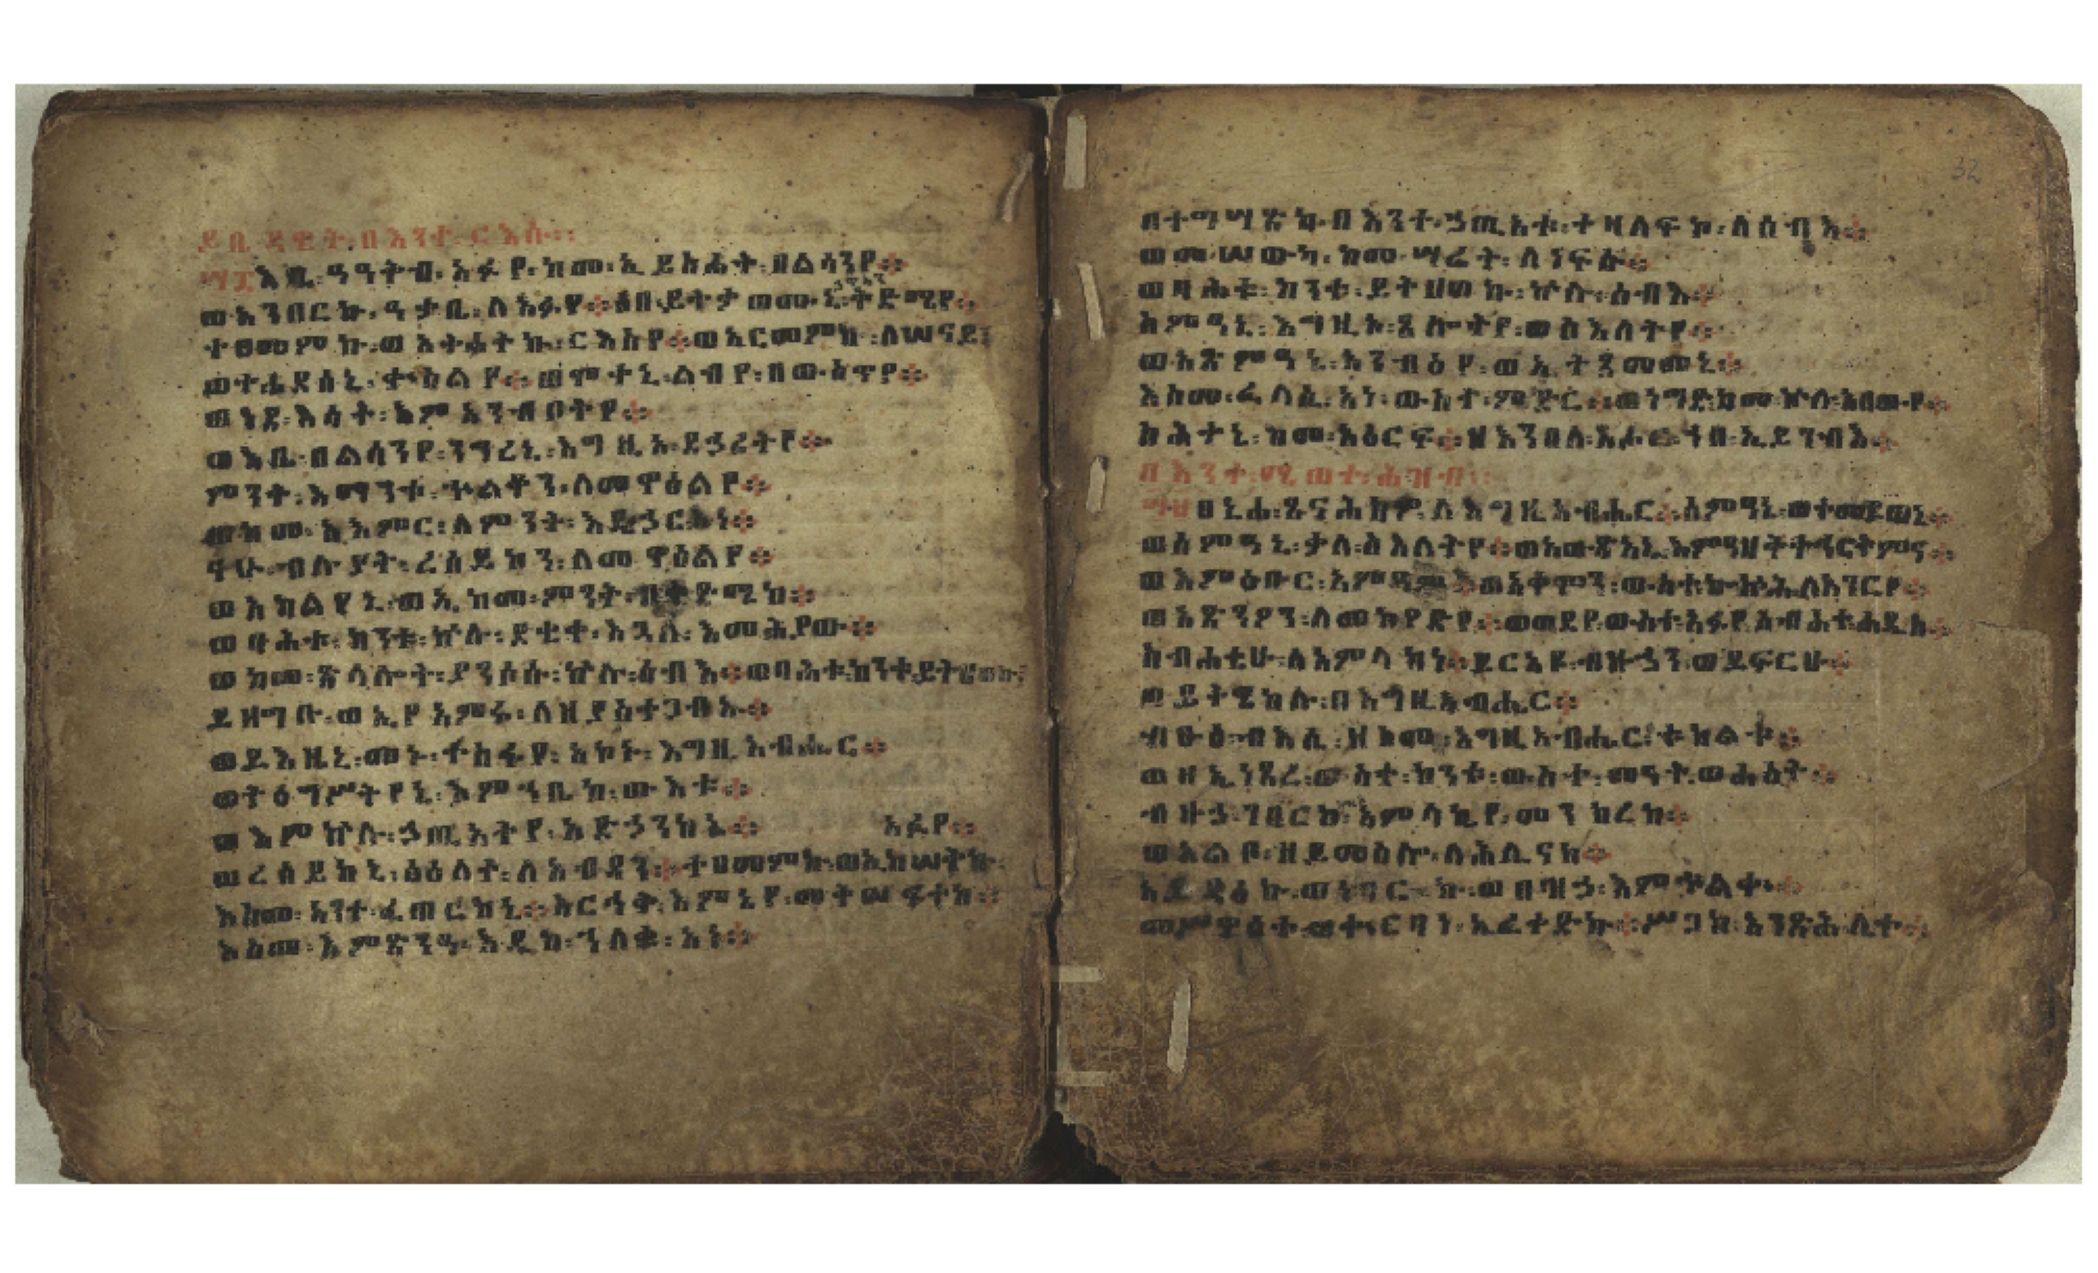 ይቤ ዳዊት በእንተ ርእሱ።
እቤ፡ ዓዓቅብ፡ አፉየ፡ ከመ፡ ኢይስሐት፡ በልሳንየ።
ወአንበርኩ፡ ዓቃቤ፡ ለአፉየ። ሶበ፡ ይትቃወሙኒ፡ ቅድሜየ።
ተፀመምኩ፡ ወአትሐትኩ፡ ርእስየ። ወአርመምኩ፡ ለሠናይ፤
ወተሐደሰኒ፡ ቍስልየ። ወሞቀኒ፡ ልብየ፡ በውስጥየ።
ወነደ፡ እሳት፡ እም አንብቦትየ።
ወእቤ፡ በልሳንየ፡ ንግረኒ፡ እግዚኦ፡ ደኃሪትየ።
ምንት፡ እማንቱ፡ ኍልቆን፡ ለመዋዕልየ።
ወከመ፡ አእምር፡ ለምንት፡ እዴኃር፡ አነ።
ናሁ፡ ብሉያት፡ ረሰይኮን፡ ለመዋዕልየ።
ወአካልየኒ፡ ወኢከመ፡ ምንት፡ ብቅድሜከ።
ወባሕቱ፡ ከንቱ፡ ኵሉ፡ ደቂቀ፡ እጓለ፡ እመሕያው።
ወከመ፡ ጽላሎት፡ ያንሶሱ፡ ኵሉ፡ ሰብእ። ወባሕቱ፡ ከንቱ፡ ይትሀወኩ፤
ይዘግቡ፡ ወኢየአምሩ፡ ለዘያስተጋብኡ።
ወይእዜኒ፡ መኑ፡ ተስፋየ፡ አኮኑ፡ እግዚአብሔር።
ወትዕግሥትየኒ፡ እምኀቤከ፡ ውእቱ።
ወእምኵሉ፡ ኃጢአትየ፡ አድኅንከኒ። አፉየ።
ወረሰይከኒ፡ ፅዕለተ፡ ለአብዳን። ተፀመምኩ፡ ወኢከሠትኩ
እስመ፡ አንተ፡ ፈጠርከኒ። አርሕቅ፡ እምኔየ፡ መቅሠፍተከ።
እስመ፡ እምጽንዓ፡ እዴከ፡ ኀለቁ፡ አነ።
በተግሣጽከ፡ በእንተ፡ ኃጢአቱ፡ ተዛለፍኮ፡ ለሰብእ።
ወመሠውካ፡ ከመ፡ ሣሬት፡ ለነፍሱ።
ወባሕቱ፡ ከንቱ፡ ይትሀወኩ፡ ኵሉ፡ ሰብእ።
ስምዓኒ፡ እግዚኦ፡ ጸሎትየ፡ ወስእለትየ።
ወአጽምዓኒ፡ አንብዕየ፡ ወኢትጸመመኒ።
እስመ፡ ፈላሲ፡ አነ፡ ውስተ፡ ምድር። ወነግድ፡ ከመ፡ ኵሉ፡ አበውየ።
ስሕተኒ፡ ከመ፡ አዕርፍ። ዘእንበለ፡ እሖር፡ ኀበ፡ ኢይገብእ።
በእንተ፡ ሚጠተ፡ ሕዝብ።
ፀኒሐ፡ ጸናሕክዎ፡ ለእግዚአብሔር። ሰምዓኒ፡ ወተመይጠኒ።
ወሰምዓኒ፡ ቃለ፡ ስእለትየ። ወአውጽአኒ፡ እምዓዘቅተ ኅርትምና።
ወእምዕቡር፡ እምዳም። ወአቀሞን፡ ውስተ፡ ኰኵሕ፡ ለእገርየ።
ወአጽንዖን፡ ለመከየድየ። ወወደየ፡ ውስተ፡ አፉየ ስብሐተ፡ ሐዲስ።
ስብሐቲሁ፡ ለአምላክነ። ይርአዩ፡ ብዙኃን፡ ወይፍርሁ።
ወይትዌከሉ፡ በእግዚአብሔር።
ብፁዕ፡ ብእሲ፡ ዘስመ፡ እግዚአብሔር፡ ትውክልቱ።
ወዘኢነጸረ፡ ውስተ፡ ከንቱ፡ ውስተ፡ መዓት፡ ወሐሰት።
ብዙኃ፡ ገበርከ፡ አምላኪየ፡ መንክረከ።
ወአልቦ፡ ዘይመስሎ፡ ለሕሊናከ።
አይዳዕኩ፡ ወነገርኩ፡ ወበዝኃ፡ እምኍልቍ።
መሥዋዕተ፡ ወቍርባነ፡ ኢፈቀድከ። ሥጋከ፡ አንጽሕ፡ ሊተ።